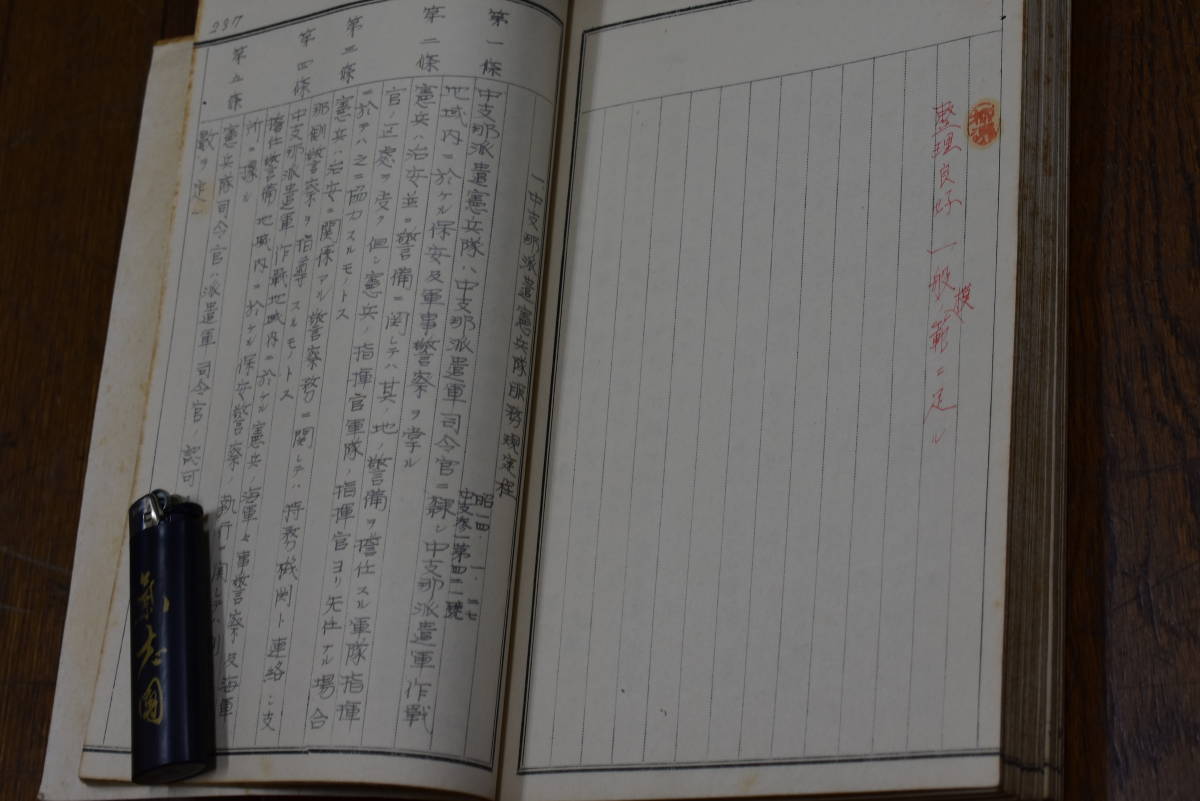 整理良好 一般模範ニ足ル
一中支那派遣憲兵隊服務規定程
昭一四、一、二七
中支参一第四二一號
第一條 中支那派遣憲兵隊ハ中支那派遣軍司令官ニ隷シ中支那派遣軍作戰
地域内ニ於ケル保安及軍事警察ヲ掌ル
第二條 憲兵ハ治安並ニ警備ニ関シテハ其ノ地ノ警備ヲ擔任スル軍隊指揮
官ノ区處ヲ受ク但シ憲兵ノ指揮官軍隊ノ指揮官ヨリ先任ナル場合
ニ於テハ之ニ協力スルモノトス
第三條 憲兵ハ治安ニ関係アル警察務ニ関シテハ特務機関ト連絡シ支
那側警察ヲ指導スルモノトス
第四條 中支那派遣軍作戰地域内ニ於ケル憲兵ノ海軍々事警察及海軍
擔任警備地域内ニ於ケル保安警察ノ執行ニ関シテハ別
ニ據ル
第五條 憲兵隊司令官ハ派遣軍司令官ノ認可
ヲ定ム
237